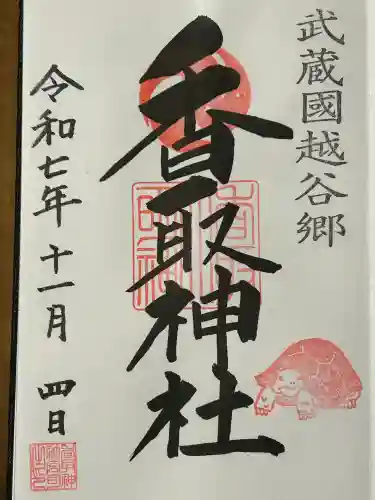 武蔵國越谷郷
香取神社
令和七年十一月四日